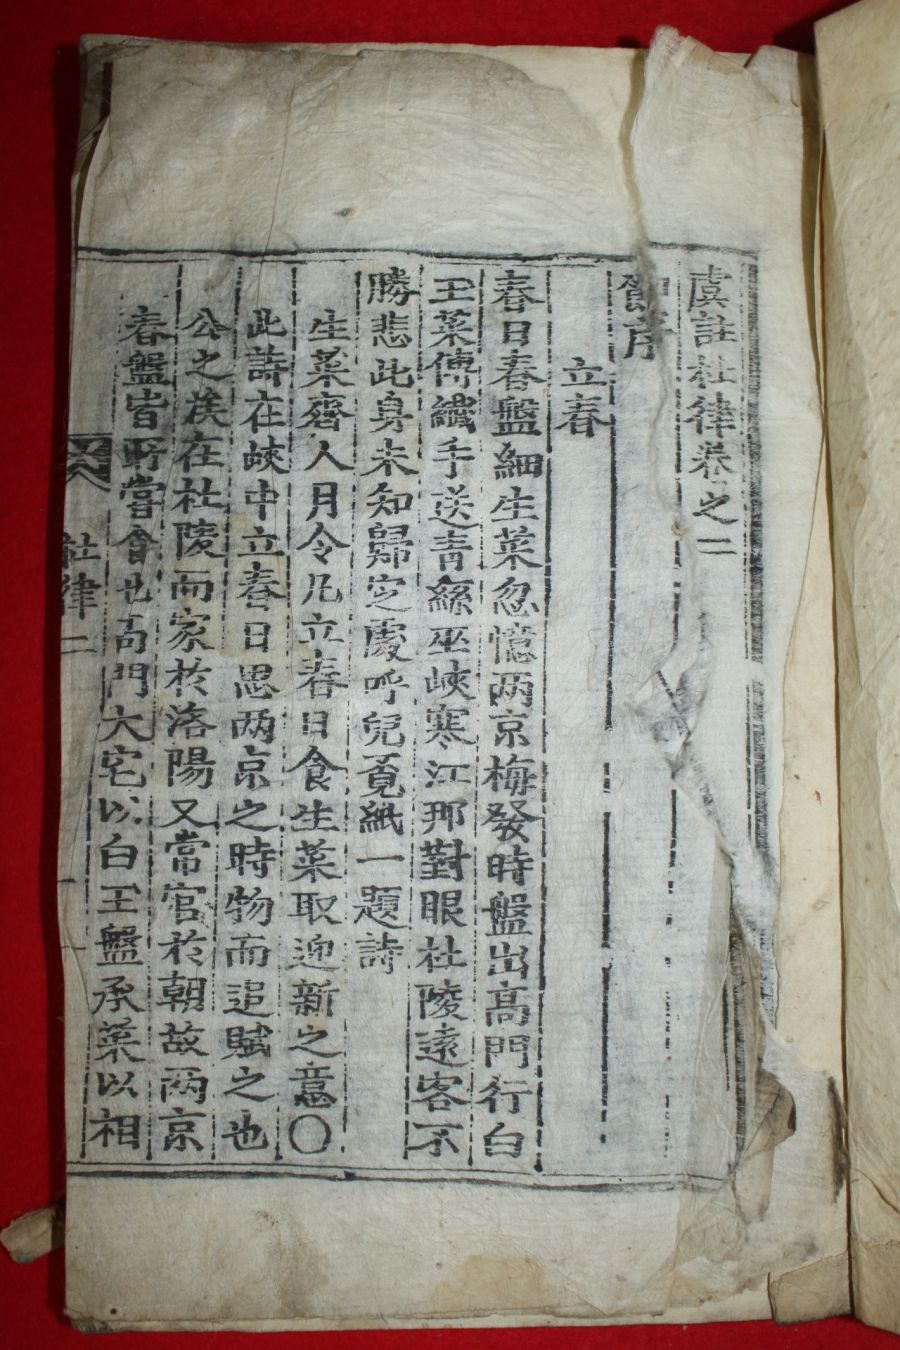 虞註杜律卷之二
節序
立春
春日春盤細生菜忽憶两京梅發時盤出高門行白
玉菜傳纖手送青絲巫峽寒江那對眼杜陵遠客不
勝悲此身未知歸定處呼兒覔紙一題詩
生菜齊人月令凡立春日食生菜取迎新之意〇
此詩在峽中立春日思两京之時物而追賦之也
公之族在杜陵而家於洛陽又常官於朝故两京
春盤皆所嘗食也高門大宅以白玉盤承菜以相
杜律二